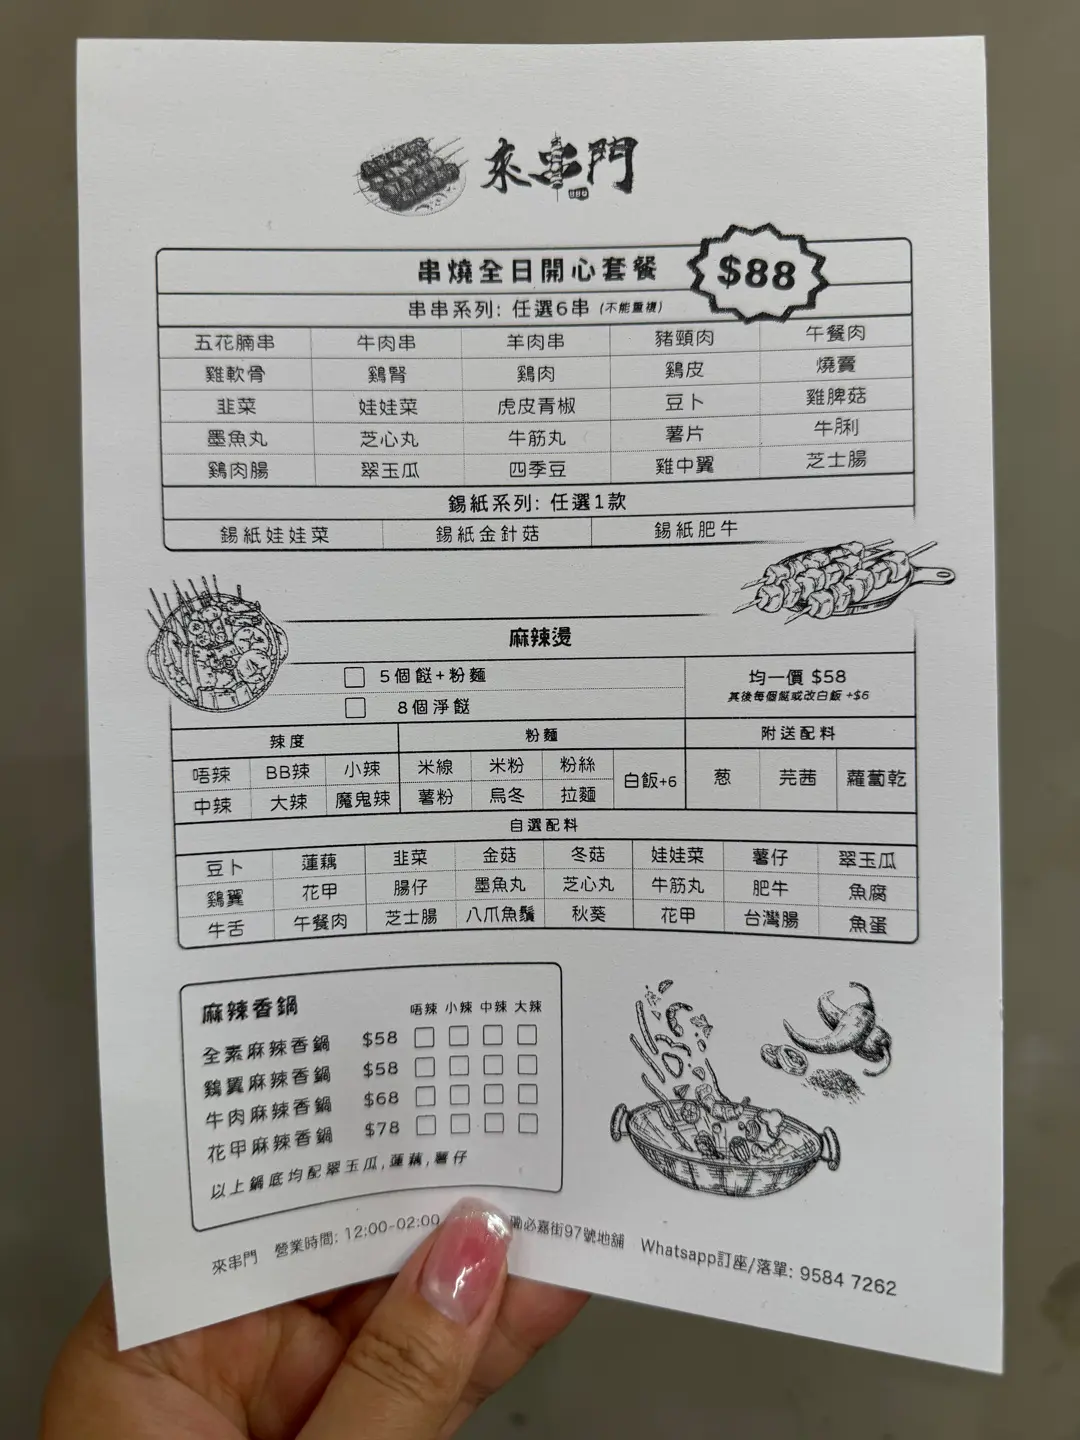 來串門
串燒全日開心套餐 $88
串串系列: 任選6串 (不能重複)
五花腩串 牛肉串 羊肉串 豬頸肉 午餐肉
雞軟骨 鷄腎 鷄肉 鷄皮 燒賣
韭菜 娃娃菜 虎皮青椒 豆卜 雞脾菇
墨魚丸 芝心丸 牛筋丸 薯片 牛脷
鷄肉腸 翠玉瓜 四季豆 雞中翼 芝士腸
錫紙系列: 任選1款
錫紙娃娃菜 錫紙金針菇 錫紙肥牛
麻辣燙
5個餸+粉麵
8個淨餸
均一價 $58
其後每個餸或改白飯 +$6
辣度 粉麵 附送配料
唔辣 BB辣 小辣 米線 米粉 粉絲 白飯+6 葱 芫茜 蘿蔔乾
中辣 大辣 魔鬼辣 薯粉 烏冬 拉麵
自選配料
豆卜 蓮藕 韭菜 金菇 冬菇 娃娃菜 薯仔 翠玉瓜
鷄翼 花甲 腸仔 墨魚丸 芝心丸 牛筋丸 肥牛 魚腐
牛舌 午餐肉 芝士腸 八爪魚鬚 秋葵 花甲 台灣腸 魚蛋
麻辣香鍋 唔辣 小辣 中辣 大辣
全素麻辣香鍋 $58
鷄翼麻辣香鍋 $58
牛肉麻辣香鍋 $68
花甲麻辣香鍋 $78
以上鍋底均配翠玉瓜,蓮藕,薯仔
來串門 營業時間: 12:00-02:00 必嘉街97號地舖 Whatsapp訂座/落單: 9584 7262